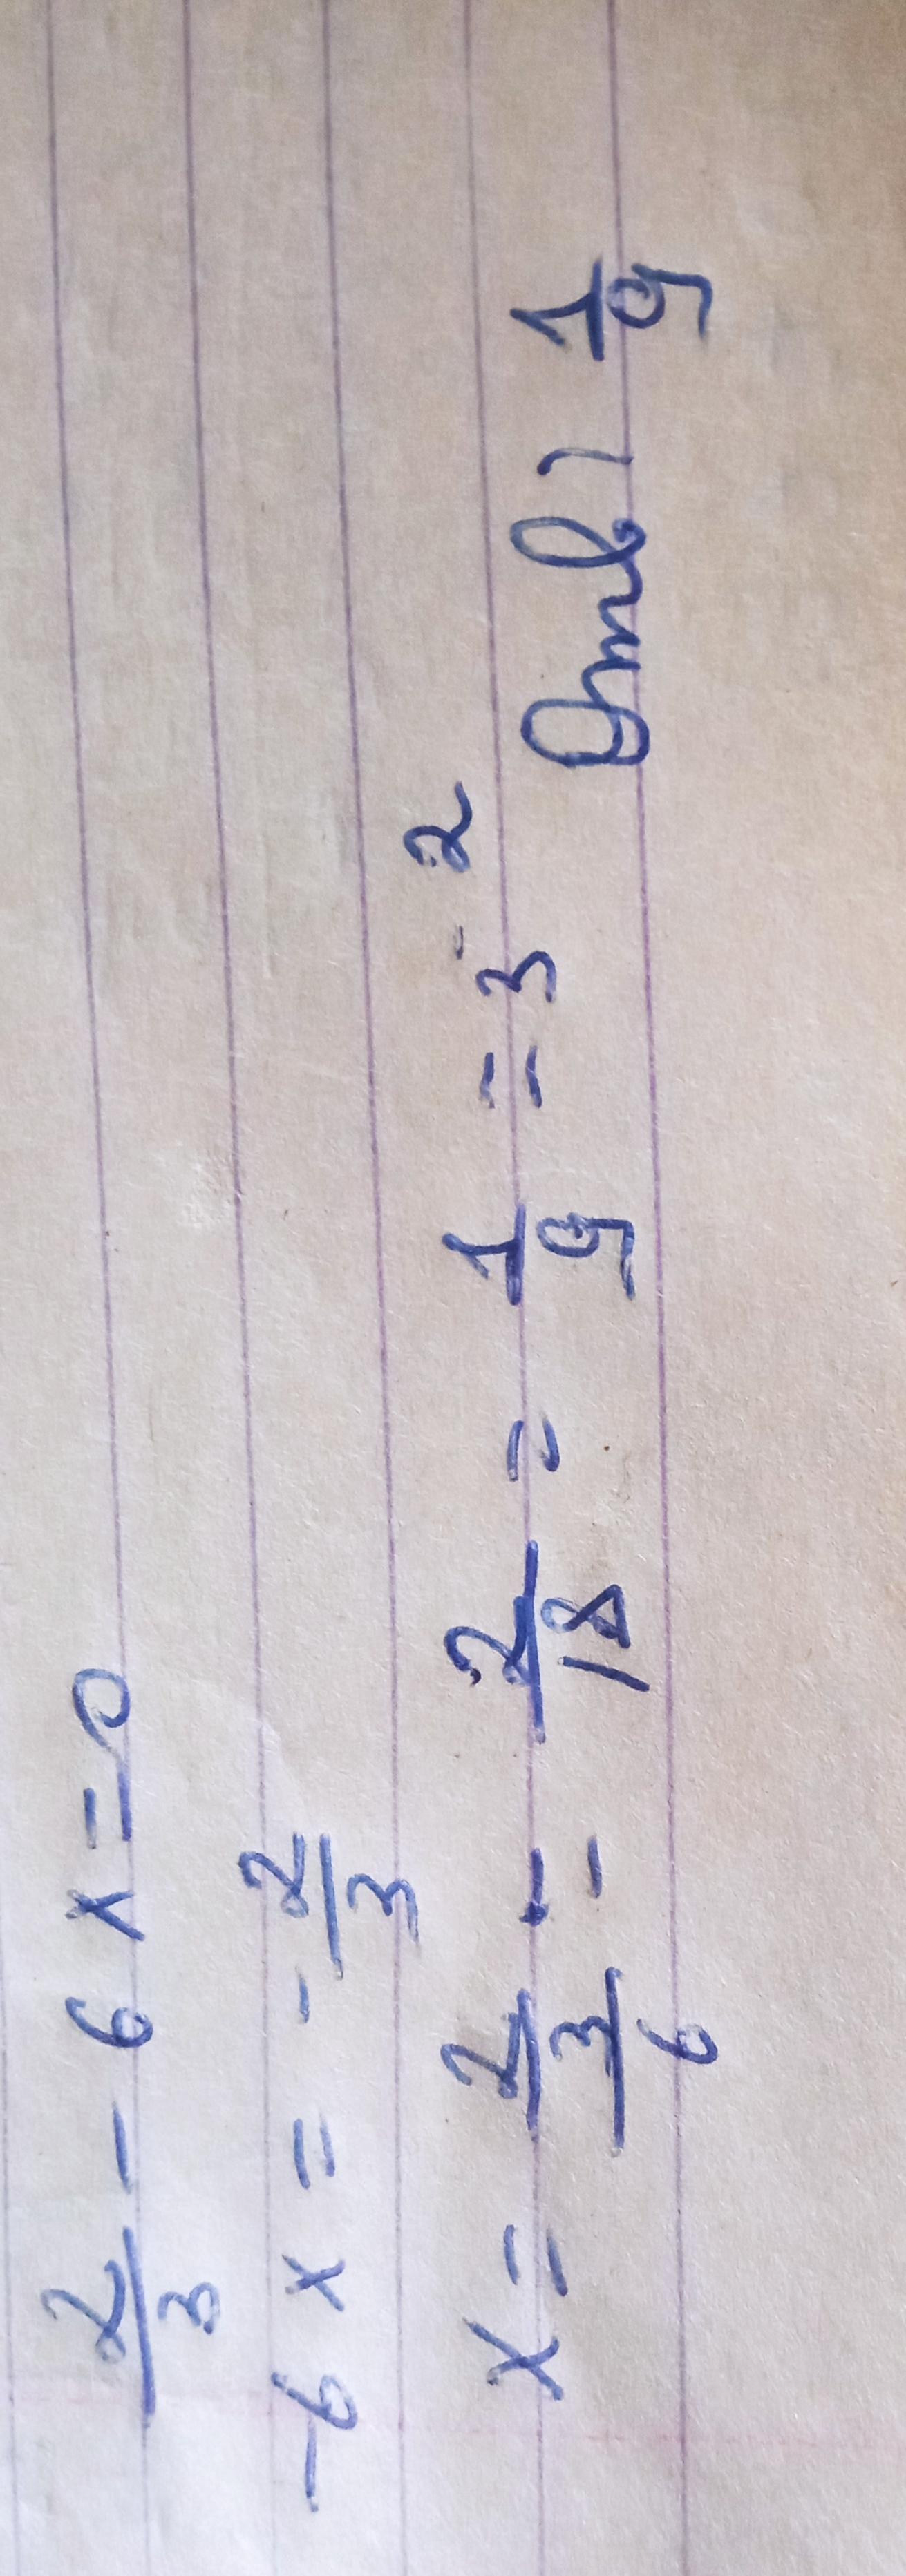 2/3 - 6x = 0
-6x = -2/3
x = 2/3/6 = 2/18 = 1/9 = 3^-2 Ответ 1/9